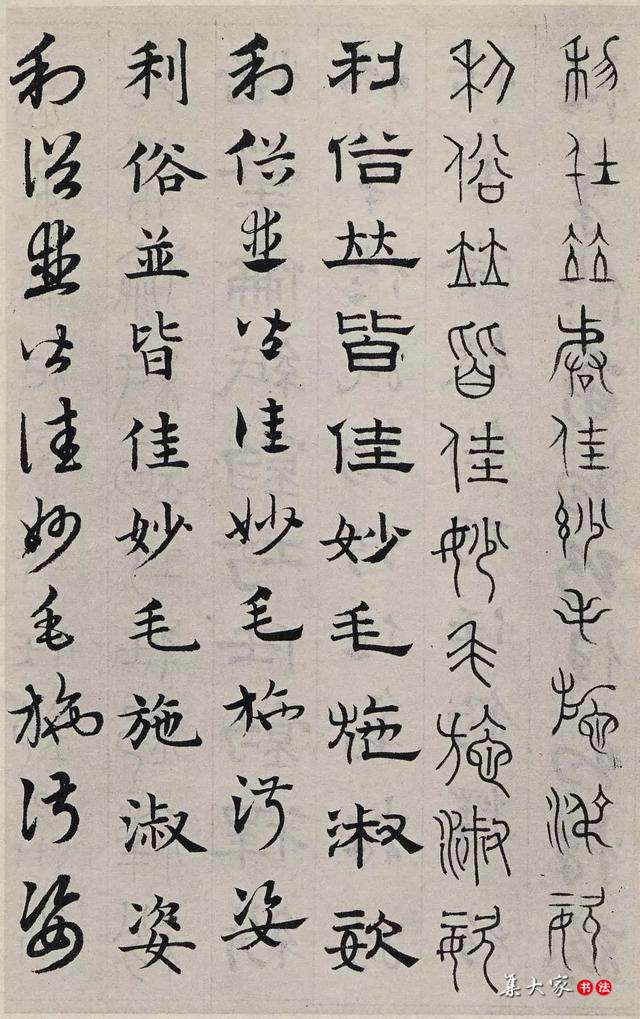 利俗並皆佳妙毛施淑姿
利俗並皆佳妙毛施淑姿
利俗並皆佳妙毛施淑姿
利俗並皆佳妙毛施淑姿
利俗並皆佳妙毛施淑姿
利俗並皆佳妙毛施淑姿
集大家书法